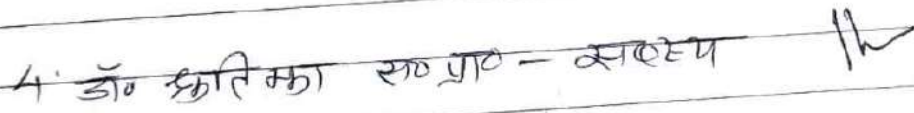 4. डॉ० श्रुति झा स० प्रा० - सदस्य